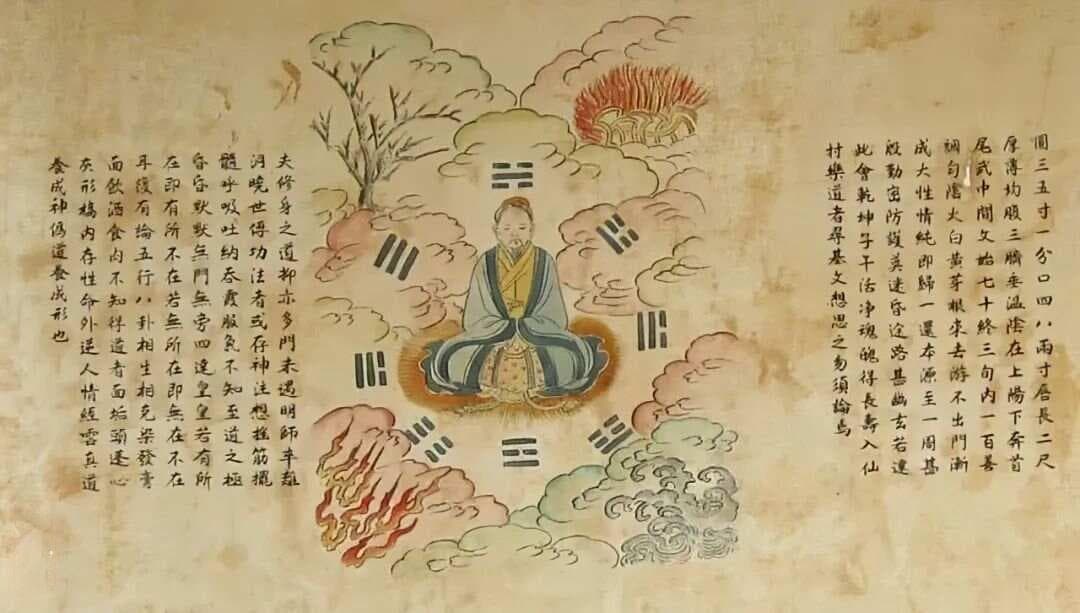 圓三五寸一分口四八兩寸唇長二尺
厚薄均腹三臍垂温陰在上陽下奔首
尾武中間文始七十終三旬内一百善
調勻陰火白黃芽根來去游不出門漸
成大性情純即歸一還本源至一周甚
殷勤密防護莫迷昏途路甚幽玄若達
此會乾坤子午活净魂魄得長壽入仙
村樂道者尋基文想思之勿須論焉
夫修身之道抑亦多門未遇明師卒難
洞曉世傳功法者或存神注想拴筋擺
髓呼吸吐納吞霞服氣不知至道之極
昏昏默默無門無旁四達皇皇若有所
在即有所不在若無所在即無在不在
耳復有論五行八卦相生相克染發膏
面飲酒食肉不知得道者面垢頭蓬心
灰形槁内存性命外逆人情經雲真道
養成神僞道養成形也